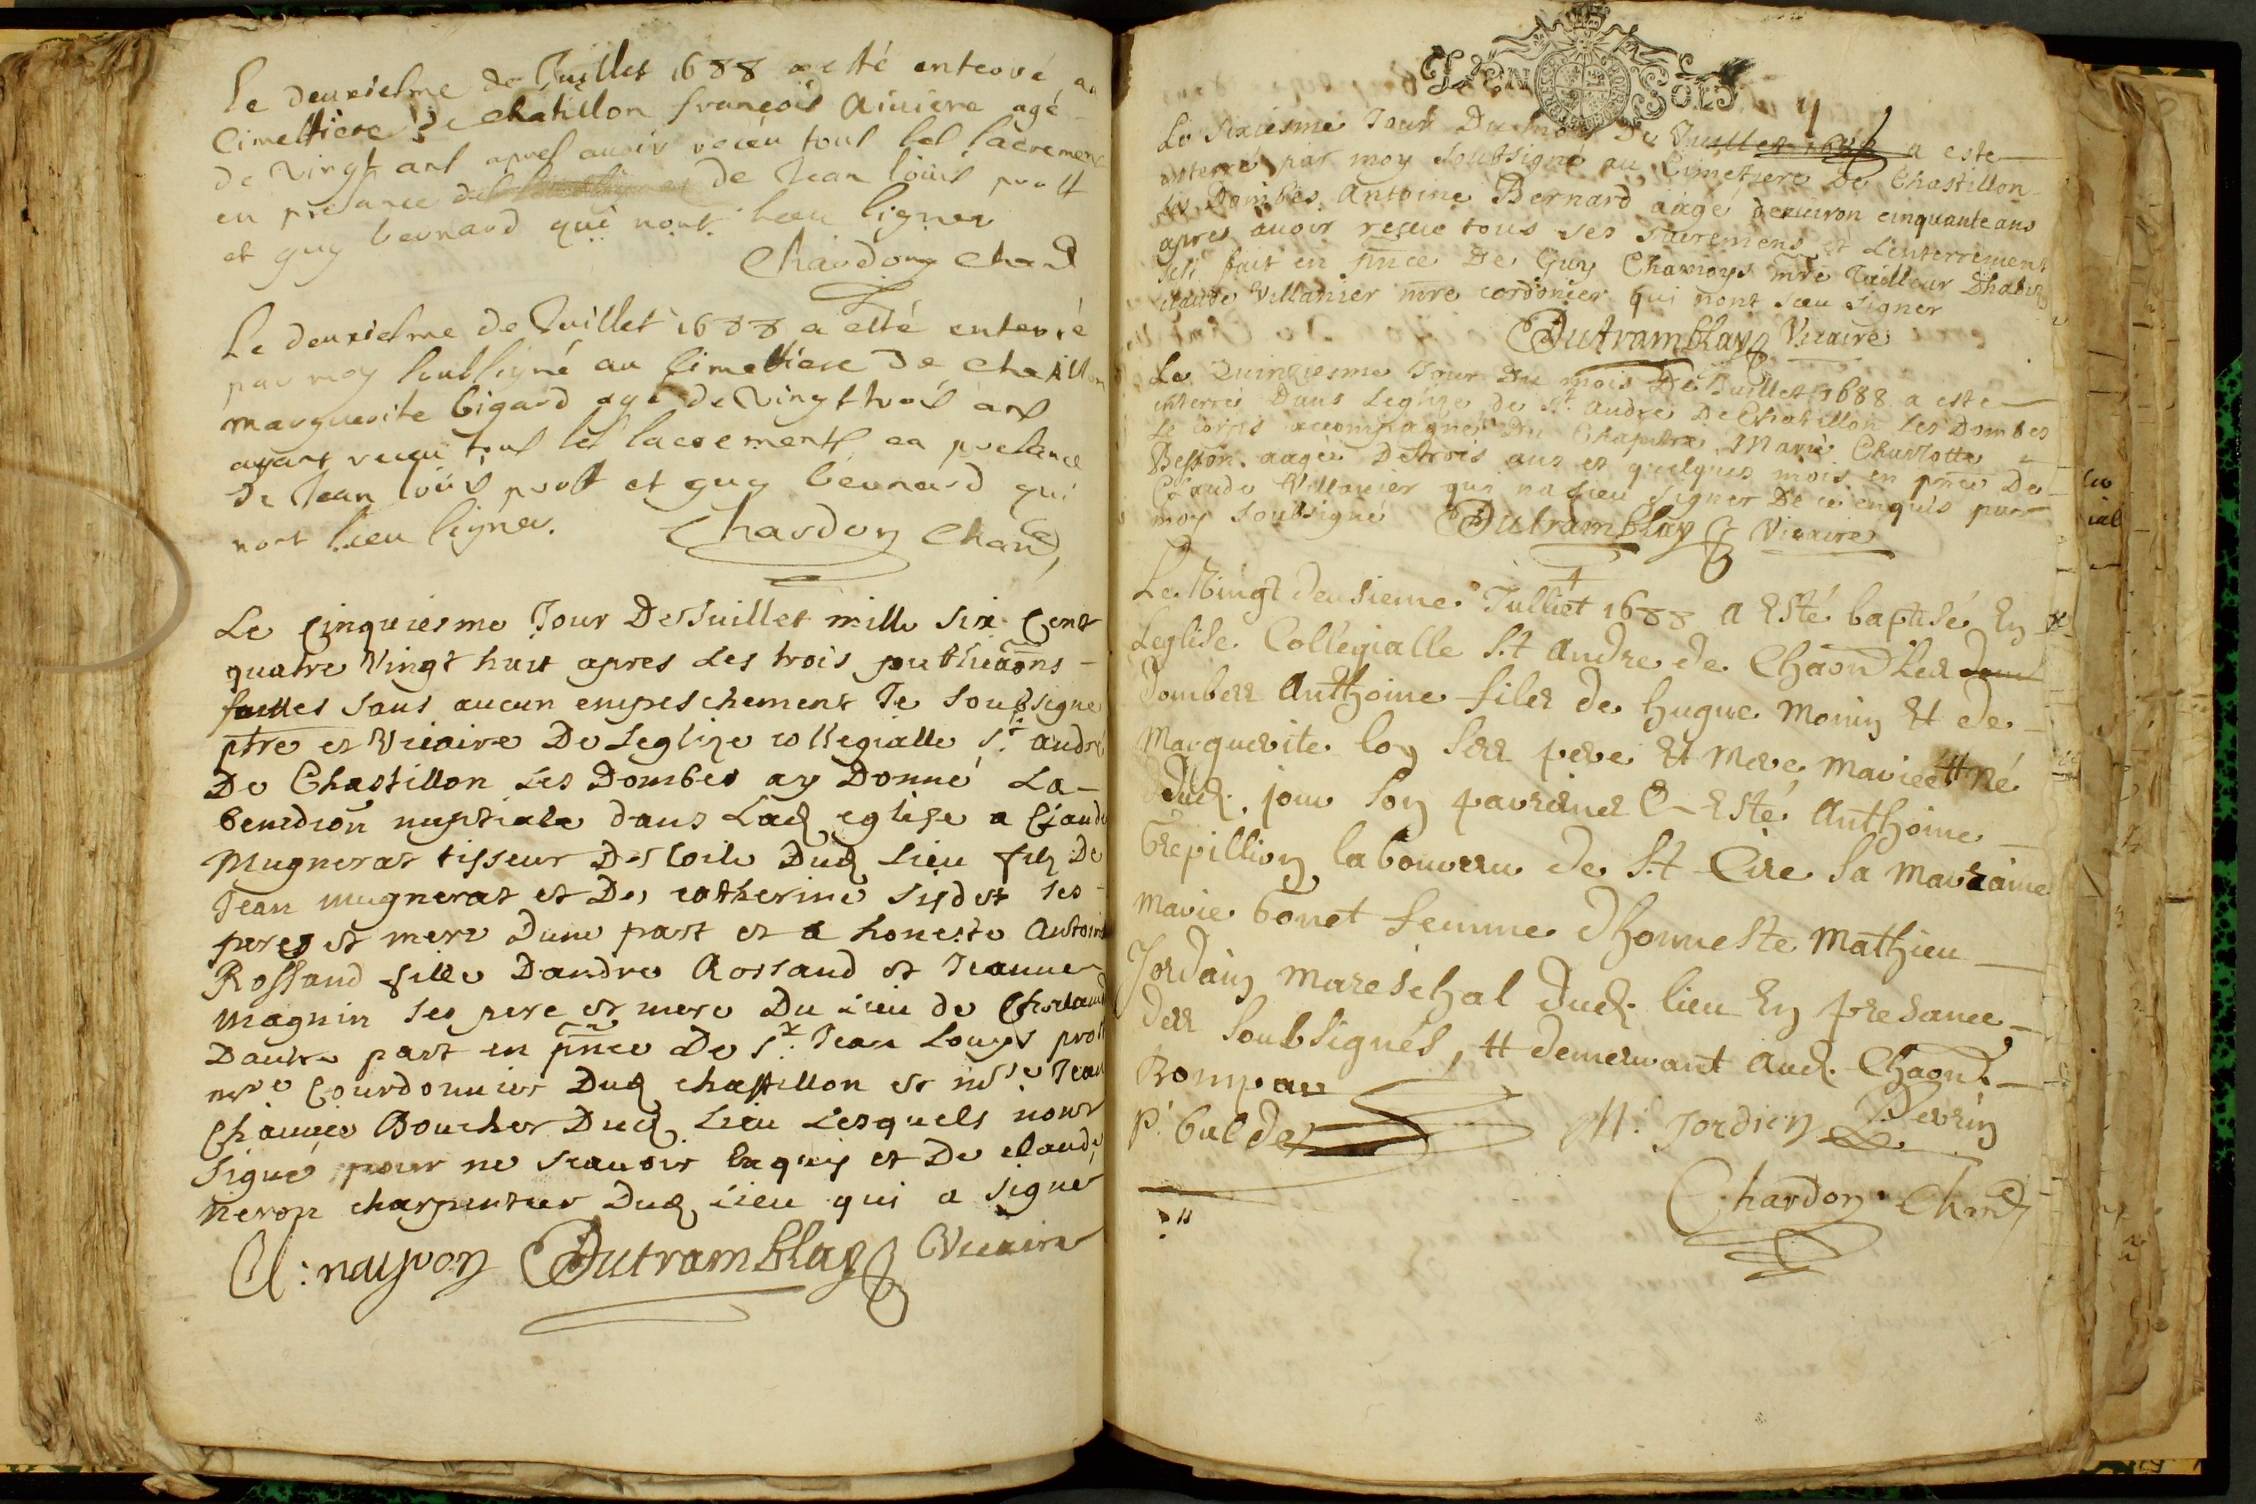 Le deuxiesme de Juillet 1688 a esté enterré au
Cimettiere de chatillon françois Riviere agé
de vingt ans apres avoir receu tous les sacremens
en presance de Jean loüis prost
et guy bernard qui nont sceu signer
Chardon Chane
Le deuxiesme de Juillet 1688 a esté enterré
par moy soubsigné au Cimettiere de chatillon
marguerite bigard agé de vingt trois ans
ayant receu tous les sacrements en presence
de Jean loüis prost et guy bernard qui
nont sceu signer. Chardon Chane
Le Cinquiesme Jour De Juillet mille six Cent
quatre Vingt huit apres Les trois publicaõns
faittes sans aucun empeschement Je soubsigne
ptre et Vicaire De Leglize collegialle St. andré
De Chastillon Les Dombes ay Donné La
benedion nuptiale dans Lad eglise a Claude
Mugnerat tisseur De toile Dud Lieu filz De
Jean mugnerat et De catherine ses
peres et mere Dune part et a honeste Antoine
Rossand fille Dandre Rossand et Jeanne
magnin ses pere et mere Du Lieu de
Dautre part en pñce De Sr. Jean Louys prost
mre Courdonnier Dud chastillon et mre Jean
Boucher Dud Lieu Lesquels nont
signé pour ne scavoir Enquis et De claude
neron charpentier Dud Lieu qui a signé
Cl: Dutramblay Vicaire
DEN SOLS
Le Sixiesme Jour Du mois De Juillet 1688 a esté
enterré par moy soubsigné au Cimetiere De Chastillon
les Dombes Antoine Bernard aagé denviron cinquante ans
apres avoir reçeu tous ses sacremens et Lenterrement
fait en pñce De Guy mre Tailleur Dhabits
claude Villanier mre cordonier qui nont sceu signer
Dutramblay Vicaire
Le Quinziesme Jour Du mois De Juillet 1688 a esté
enterré Dans Leglize de St. André De Chatillon Les Dombes
Le corps accompagné du Chapitre Marie Charlotte
Besson aagée De trois ans et quelques mois en pñce De
Claude Villanier qui na sceu signer De ce enquis par
moy soubsigné Dutramblay Vicaire
Le Vingt deusieme Julliet 1688 a Esté baptisé En
Leglise Collegialle St Andre de Chaon Les
Dombes Anthoine fils de hugue Monin Et de
Marguerite loy ses pere Et Mere Mariés Et Né
dud. jour son parrain a Esté Anthoine
Crepillion laboureur de St Cire sa Marraine
Marie bonet femme dhonneste Mathieu
Jordain Mareschal dud. lieu En presance
des soubsignés, Et demeurant aud. Chaon.
Rompau
P. M: Jordien Perrin
Chardon Chane